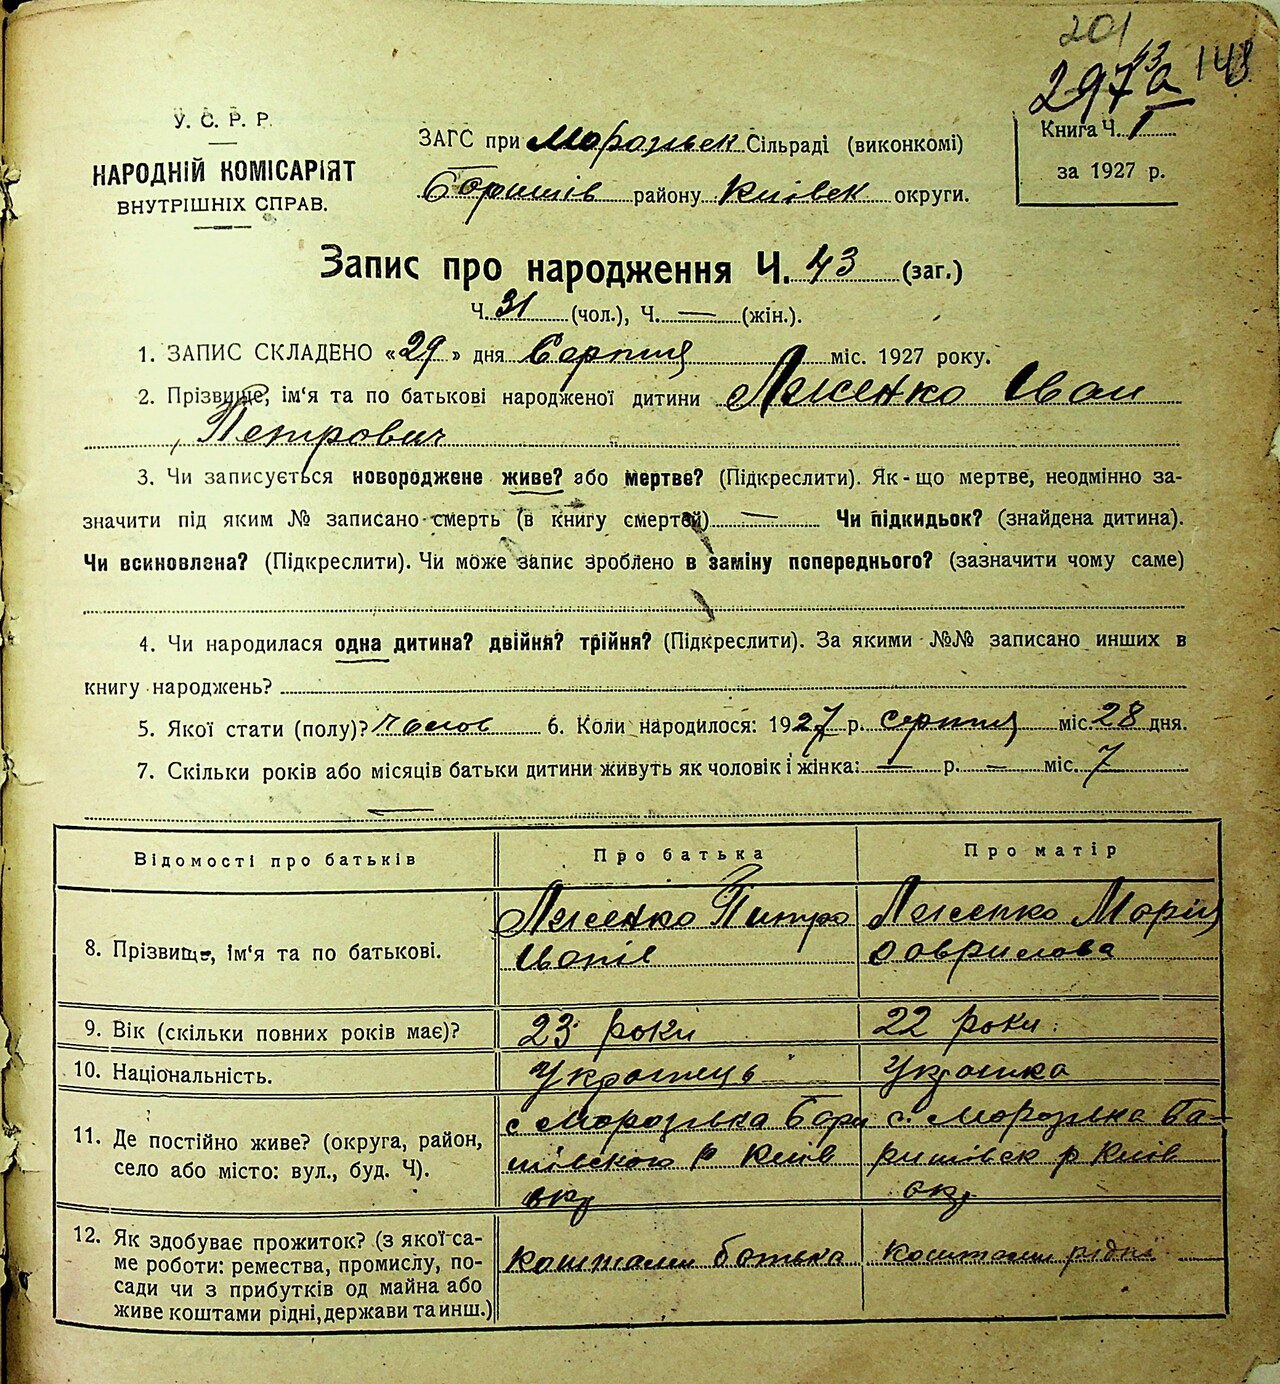 201
43
297а 148
У. С. Р. Р.
НАРОДНІЙ КОМІСАРІЯТ
ВНУТРІШНІХ СПРАВ.
ЗАГС при Морозівск Сільраді (виконкомі)
Баришів району Київск округи.
Книга Ч. 1
за 1927 р.
Запис про народження Ч. 43 (заг.)
Ч. 31 (чол.), Ч. — (жін.).
1. ЗАПИС СКЛАДЕНО «29» дня Серпня міс. 1927 року.
2. Прізвище, ім'я та по батькові народженої дитини Ляшенко Іван
Петрович
3. Чи записується новороджене живе? або мертве? (Підкреслити). Як-що мертве, неодмінно за-
значити під яким № записано смерть (в книгу смертей) — Чи підкидьок? (знайдена дитина).
Чи всиновлена? (Підкреслити). Чи може запис зроблено в заміну попереднього? (зазначити чому саме)
4. Чи народилася одна дитина? двійня? трійня? (Підкреслити). За якими №№ записано инших в
книгу народжень?
5. Якої стати (полу)? чолов 6. Коли народилося: 1927 р. серпня міс. 28 дня.
7. Скільки років або місяців батьки дитини живуть як чоловік і жінка: — р. — міс. 7
—
Відомості про батьків
Про батька
Про матір
8. Прізвище, ім'я та по батькові.
Ляшенко Питро
Іванів
Ляшенко Марія
Гаврилова
9. Вік (скільки повних років має)?
23 роки
22 роки.
10. Національність.
Українець
Українка
11. Де постійно живе? (округа, район,
село або місто: вул., буд. Ч).
с Морозівка Бари
шівского р Київ
окр
с. Морозівка Ба-
ришівск р Київ
окр.
12. Як здобуває прожиток? (з якої са-
ме роботи: ремества, промислу, по-
сади чи з прибутків од майна або
живе коштами рідні, держави та инш.)
коштами батька
коштами рідні